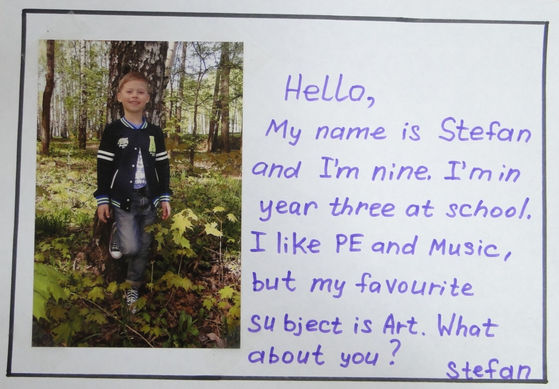 Hello,
My name is Stefan
and I'm nine. I'm in
year three at school.
I like PE and Music,
but my favourite
subject is Art. What
about you?
Stefan